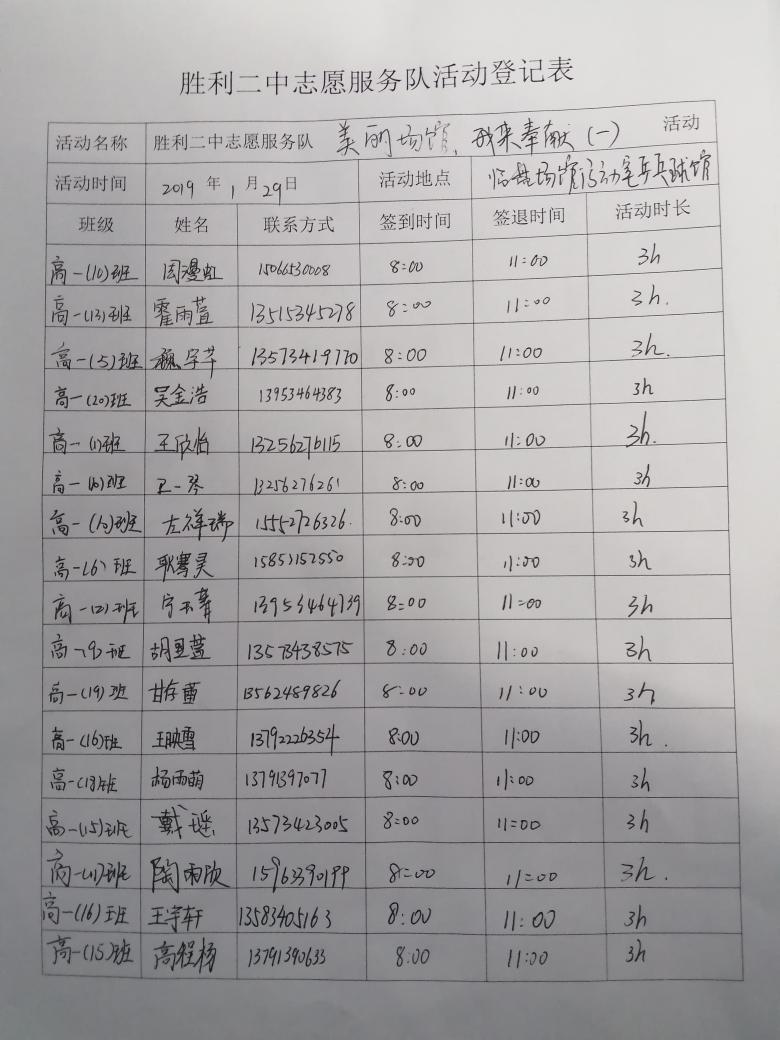 胜利二中志愿服务队活动登记表
活动名称 胜利二中志愿服务队 美丽场馆，我来奉献（一） 活动
活动时间 2019 年 1 月 29 日 活动地点 临盘场馆活动室乒乓球馆
班级 姓名 联系方式 签到时间 签退时间 活动时长
高一(10)班 周漫虹 15066530008 8:00 11:00 3h
高一(13)班 霍雨萱 13515345278 8:00 11:00 3h.
高一(5)班 魏宇芊 13573419770 8:00 11:00 3h.
高一(20)班 吴金浩 13953464383 8:00 11:00 3h
高一(1)班 王欣怡 13256276115 8:00 11:00 3h.
高一 班 王一琴 13256276261 8:00 11:00 3h
高一 班 左祥瑞 15552726326 8:00 11:00 3h
高一(6)班 耿 昊 15853152550 8:00 11:00 3h
高一(2)班 13953464739 8:00 11:00 3h
高一(9)班 胡 蓝 13573438575 8:00 11:00 3h
高一(19)班 甘存蕾 13562489826 8:00 11:00 3h
高一(16)班 王映雪 13792226354 8:00 11:00 3h.
高一 班 杨雨萌 13791397077 8:00 11:00 3h
高一(15)班 戴瑶 13573423005 8:00 11:00 3h
高一(11)班 陶雨欣 15963390199 8:00 11:00 3h.
高一(16)班 王宇轩 13583405163 8:00 11:00 3h
高一(15)班 高程杨 13791390633 8:00 11:00 3h